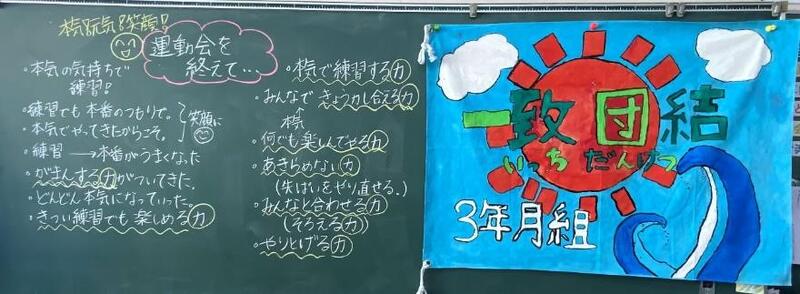 本気!元気!笑顔!
運動会を
終えて…
・本気の気持ちで
練習!
・練習でも本番のつもりで。
・本気でやってきたからこそ。
笑顔に
・練習→本番がうまくなった
・がまんする力がついてきた。
・どんどん本気になっていった。
・きつい練習でも楽しめる力
・本気で練習する力
・みんなできょう力し合える力
本気
・何でも楽しんでやる力
・あきらめない力
(失ぱいをやり直せる。)
・みんなと合わせる力
(そろえる力)
・やりとげる力
一致団結
いっちだんけつ
3年月組